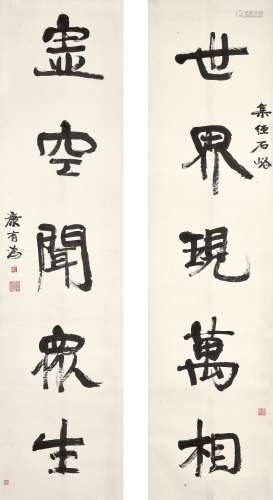 世界現萬相
集經石峪
虛空聞眾生
康有為